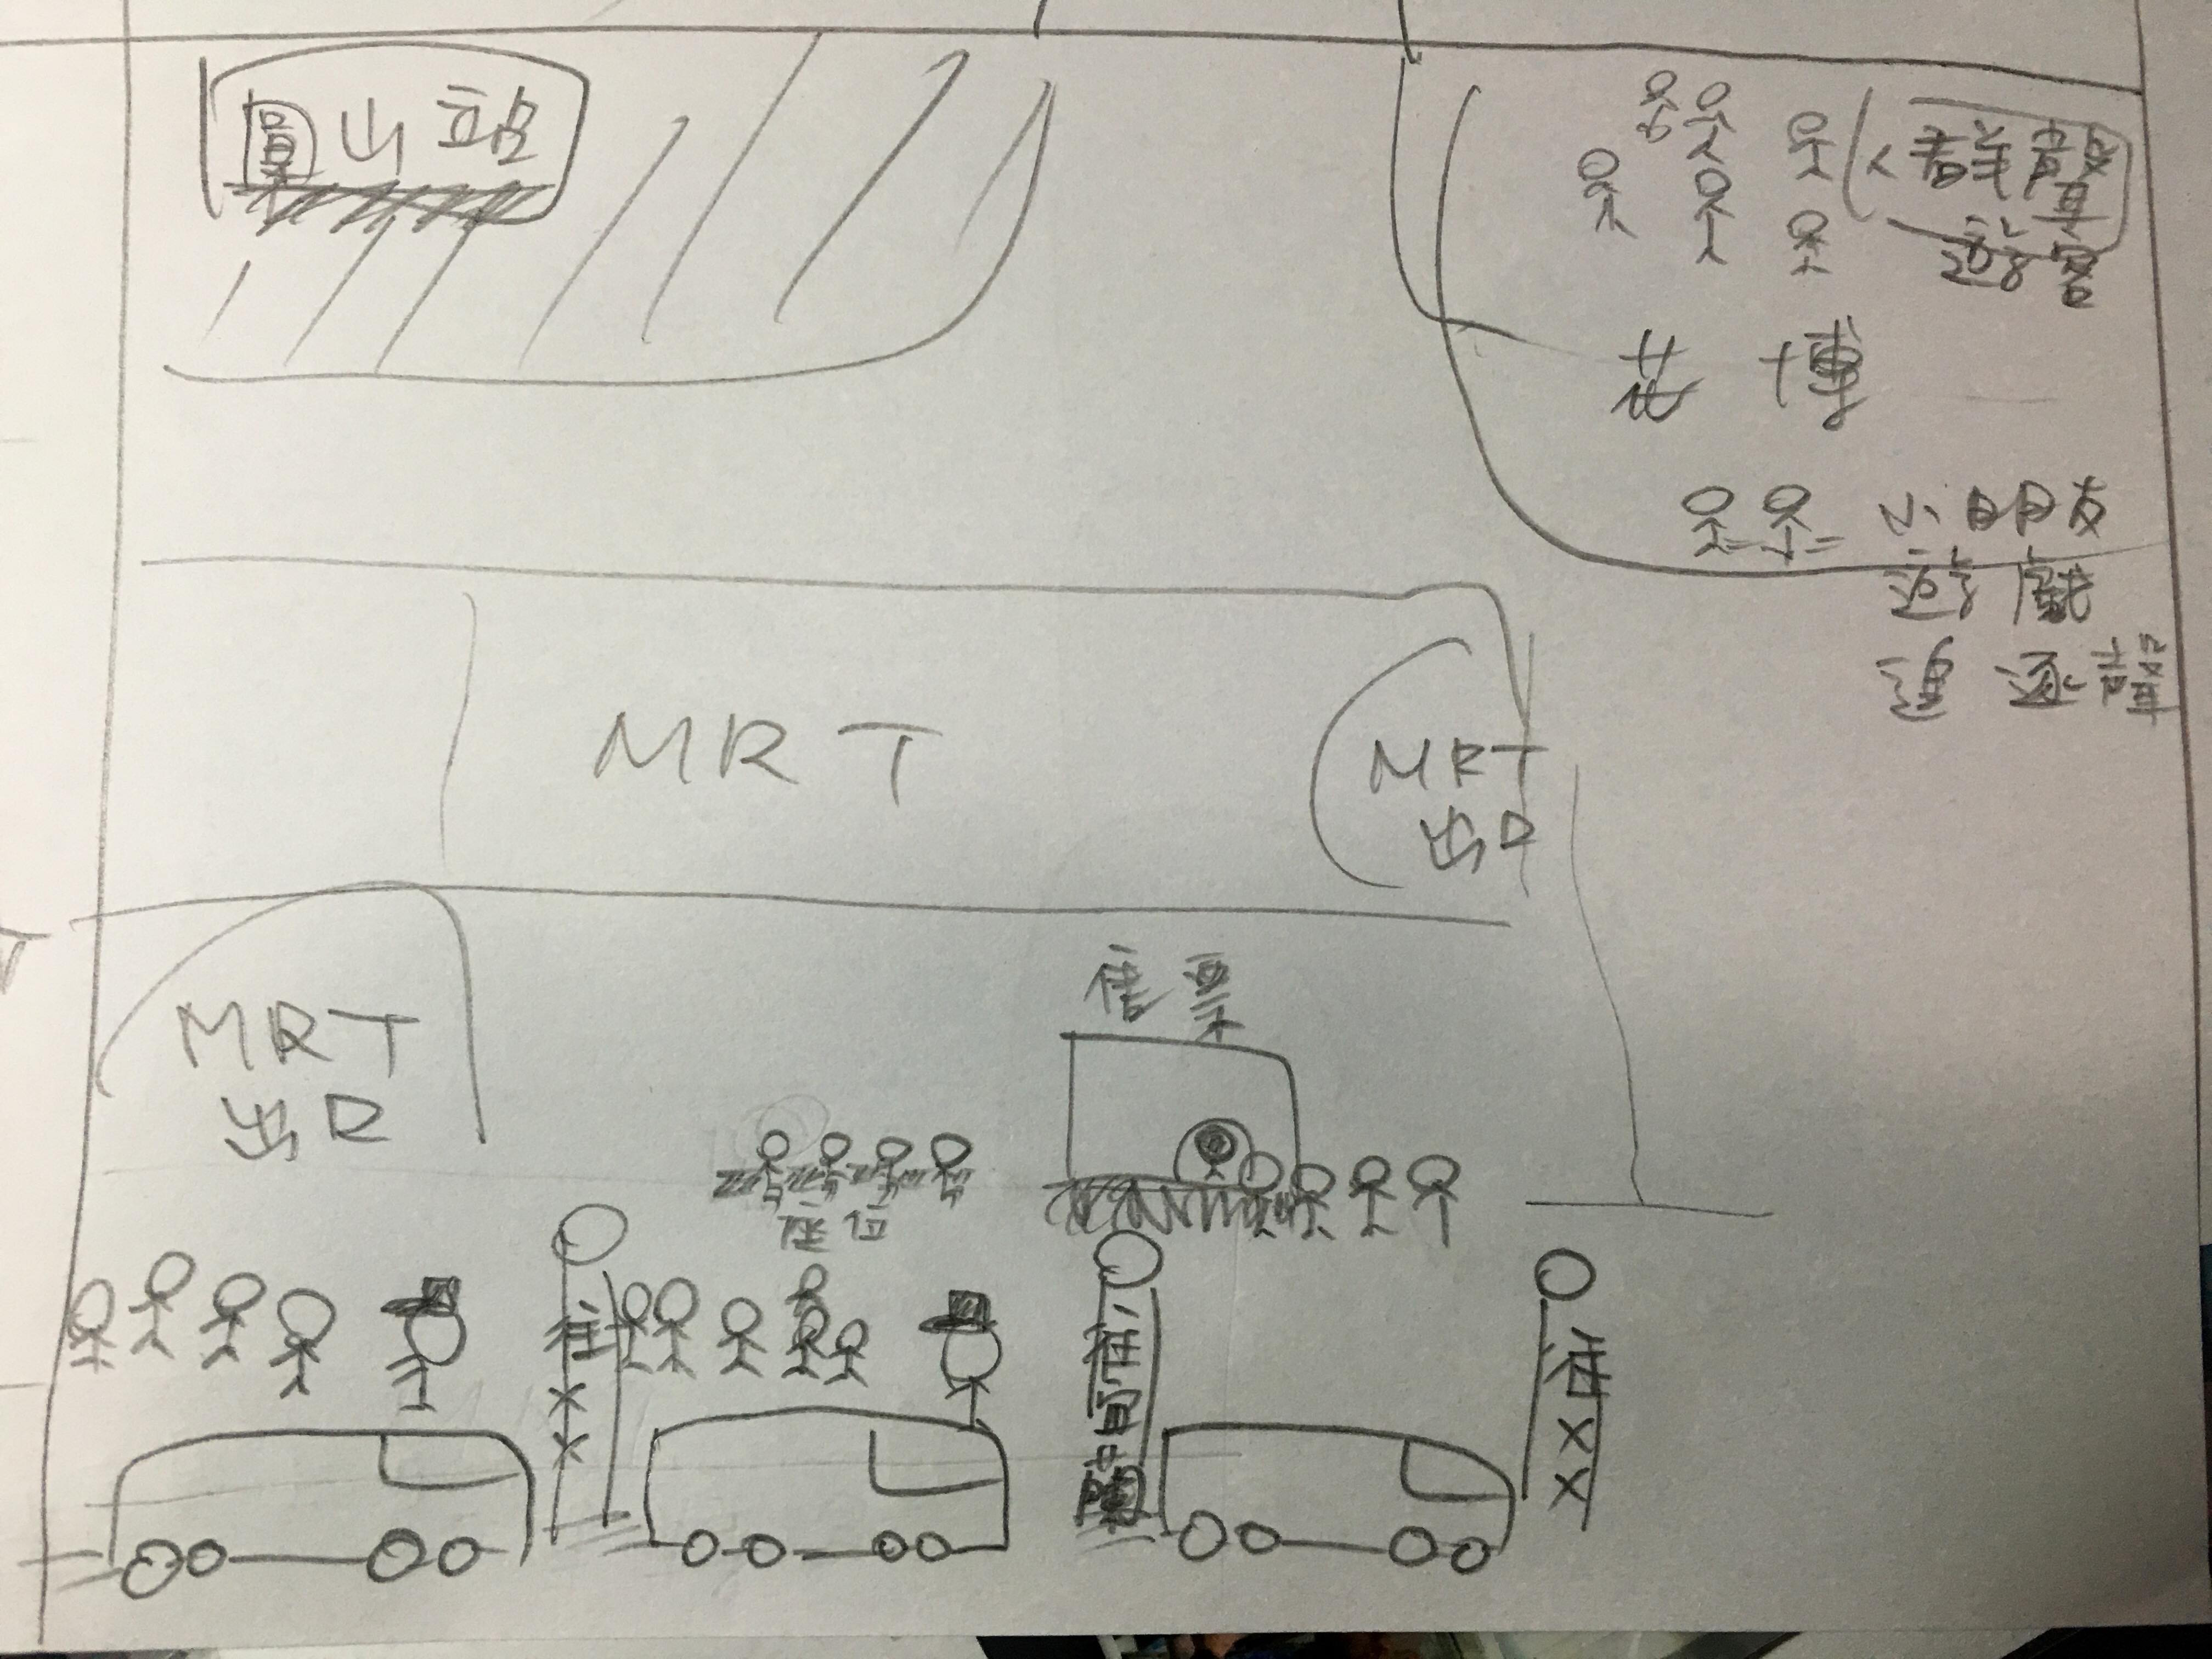 圓山站
人群聲
遊客
花博
小朋友
遊戲
追逐聲
MRT
MRT
出口
售票
MRT
出口
座位
往XX
中間
往XX